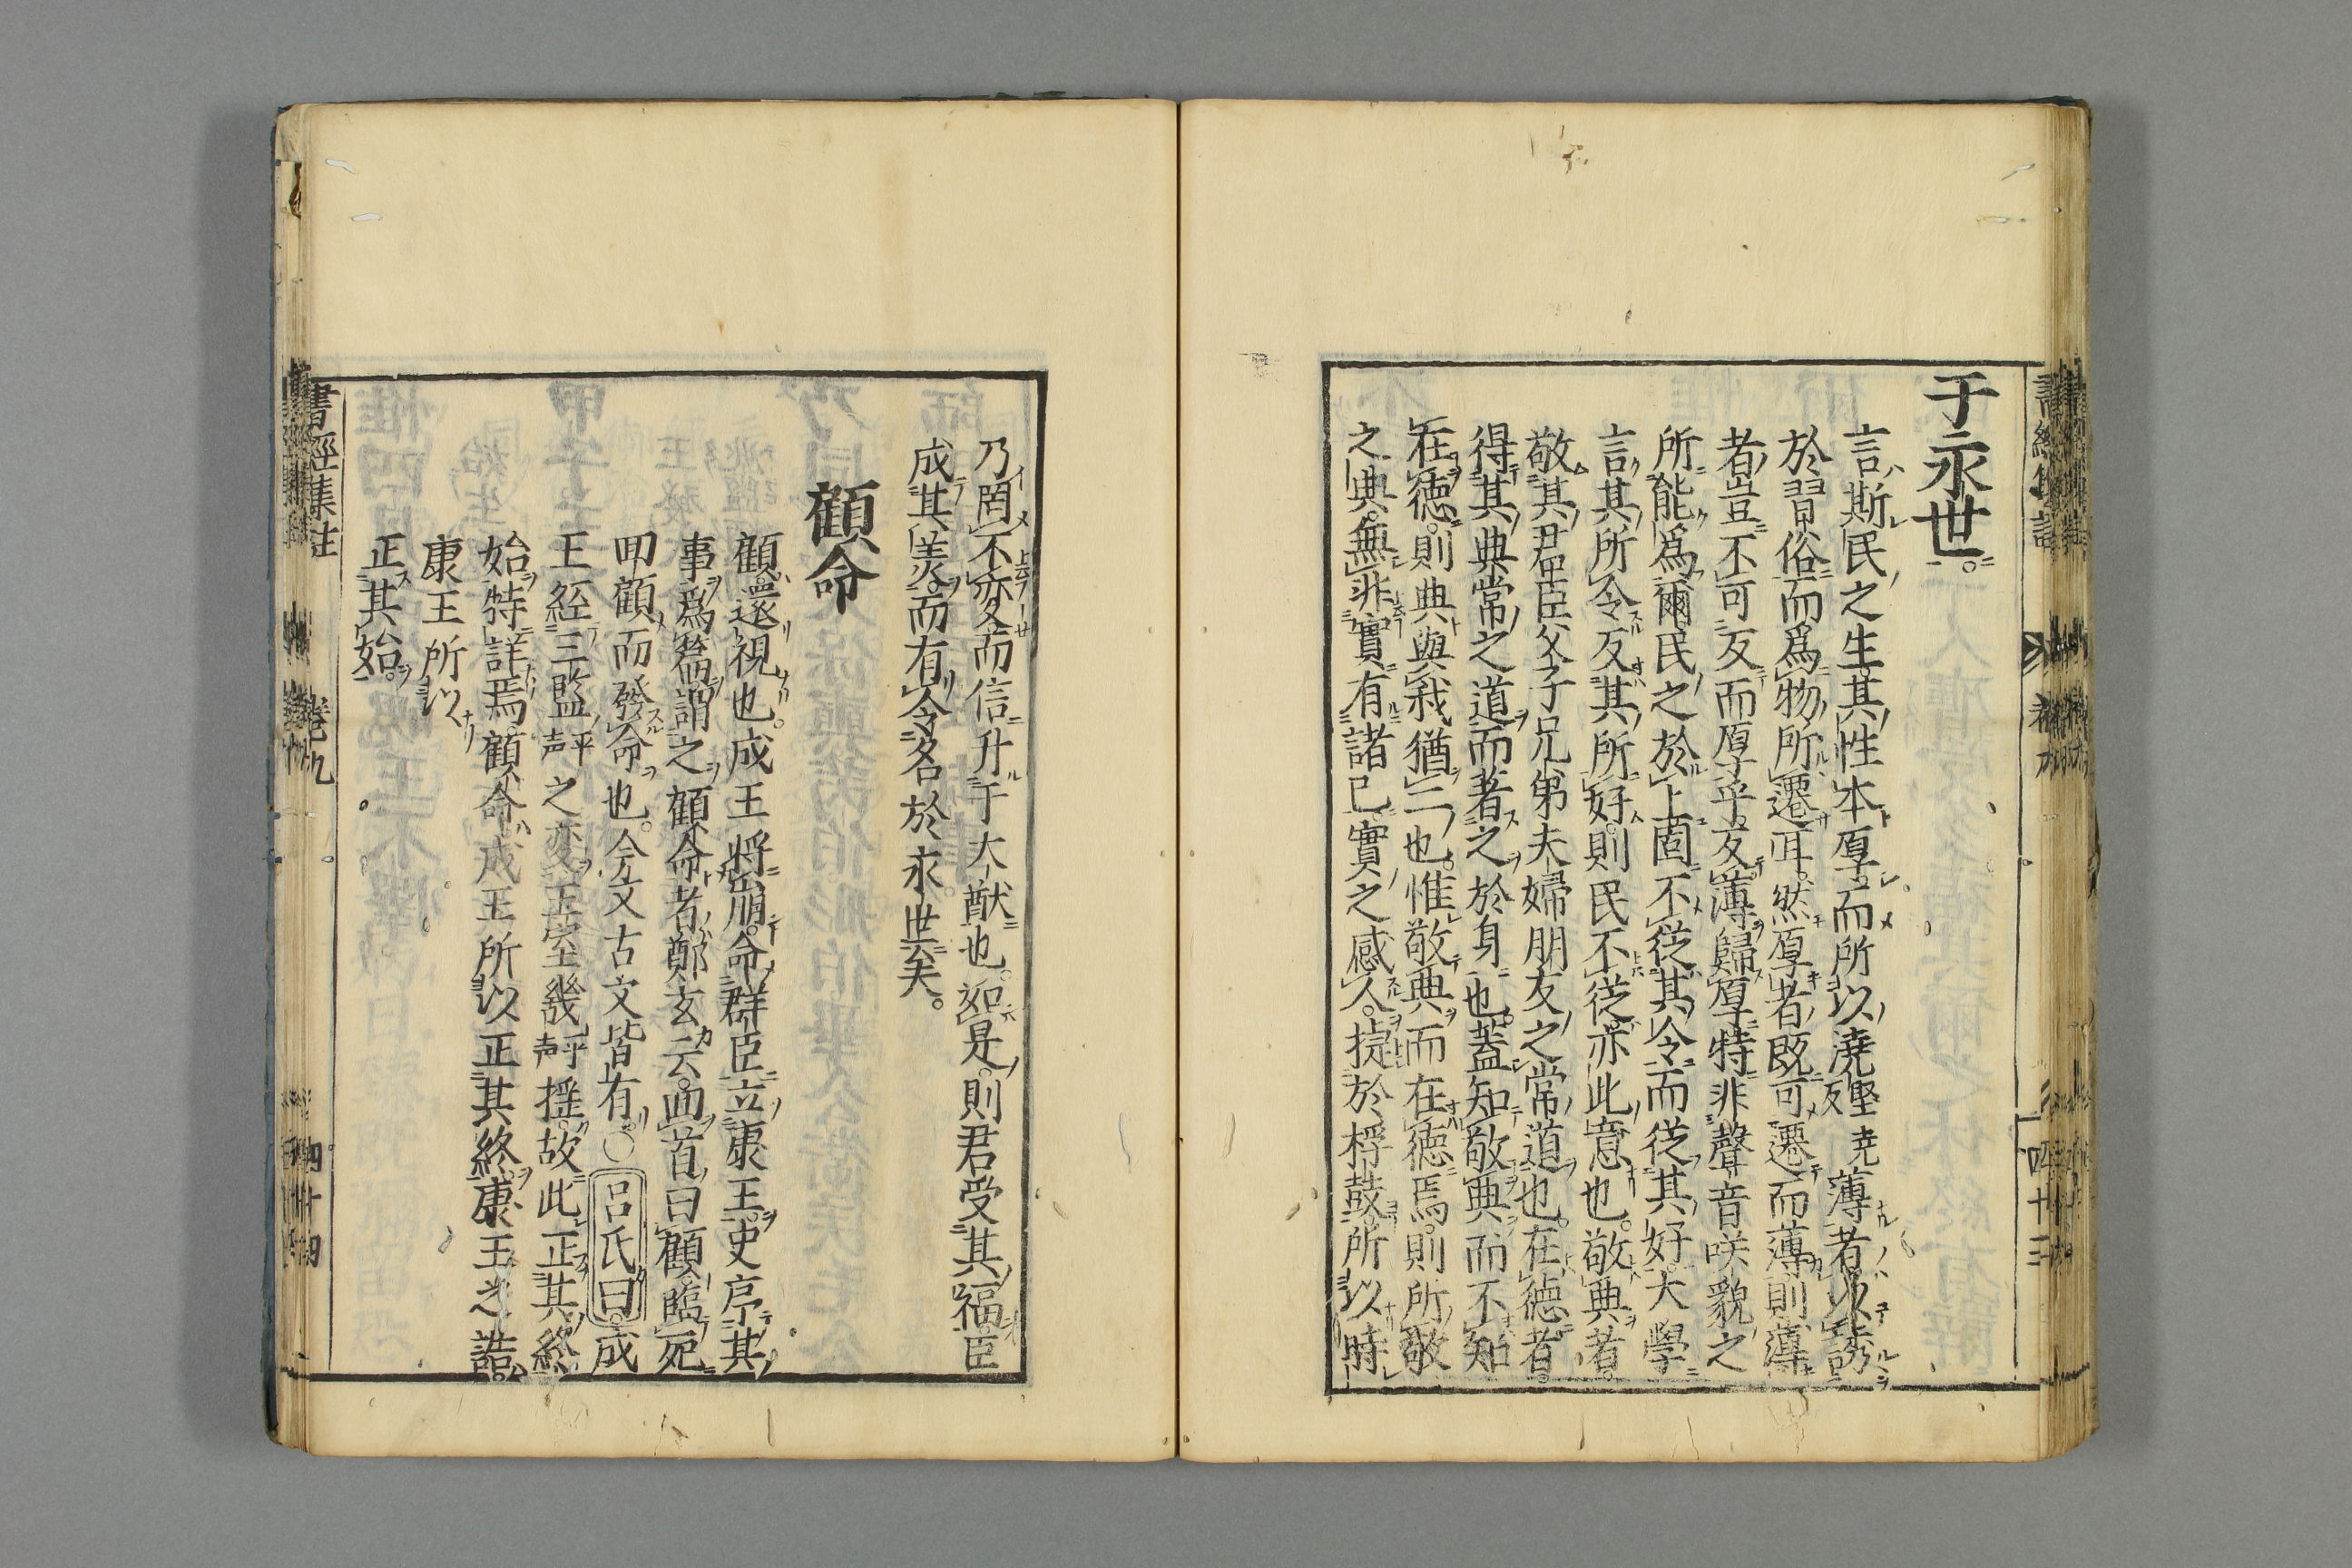 于永世
言斯民之生其性本厚而所以澆堅堯反薄者以誘
於習俗而爲物所遷耳然厚者既可遷而薄則薄
者豈不可反而厚乎反薄歸厚特非聲音咲貌之
所能爲爾民之於上固不従其令而従其好大學
言其所令反其所好則民不従亦此意也敬典者
敬其君臣父子兄弟夫婦朋友之常道也在徳者
得其典常之道而著之於身也蓋知敬典而不知
在徳則典與我猶二也惟敬典而在徳焉則所敬
之典無非實有諸己實之感人捷於桴鼓所以時
乃罔不変而信升于大猷也如是則君受其福臣
成其美而有令名於永世矣
顧命
顧還視也成王將崩命群臣立康王史序其
事爲篇謂之顧命者鄭玄云囬首曰顧臨死
囬顧而發命也今文古文皆有○呂氏曰成
王經三監平声之変王室幾平声揺故此正其終
始特詳焉顧命成王所以正其終康王之誥
康王所以
正其始
書經集註 卷九 四十四